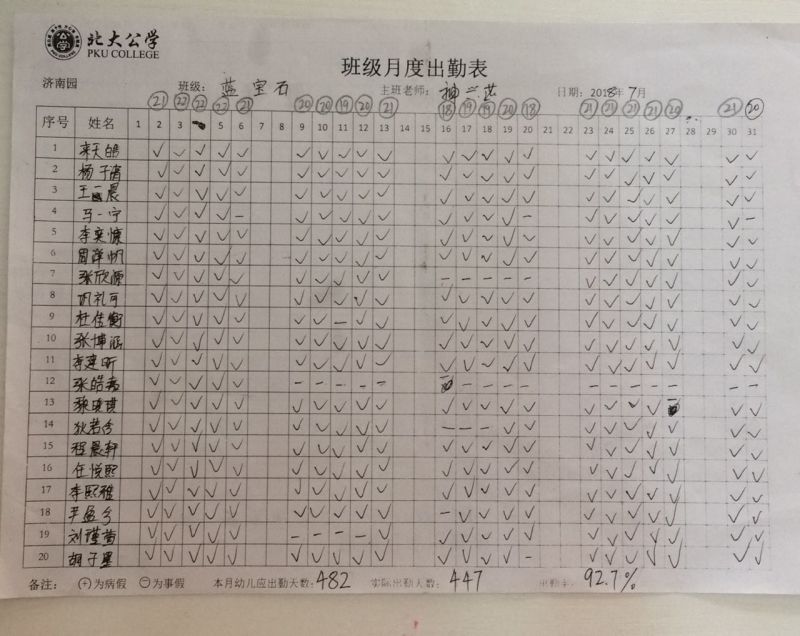 北大公学
PKU COLLEGE
班级月度出勤表
济南园 班级: 蓝宝石 主班老师: 日期: 2018年7月
21 22 22 22 21 20 20 19 20 21 18 19 19 20 18 21 21 21 21 20 21 20
序号 姓名 1 2 3 5 6 7 8 9 10 11 12 13 14 15 16 17 18 19 20 21 22 23 24 25 26 27 28 29 30 31
1 ✓ ✓ ✓ ✓ ✓ ✓ ✓ ✓ ✓ ✓ ✓ ✓ ✓ ✓ ✓ ✓ ✓ ✓ ✓ ✓ ✓ ✓
2 杨子涵 ✓ ✓ ✓ ✓ ✓ ✓ ✓ ✓ ✓ ✓ ✓ ✓ ✓ ✓ ✓ ✓ ✓ ✓ ✓ ✓ ✓ ✓
3 王一晨 ✓ ✓ ✓ ✓ ✓ ✓ ✓ ✓ ✓ ✓ ✓ ✓ ✓ ✓ ✓ ✓ ✓ ✓ ✓ ✓ ✓ ✓
4 马一宁 ✓ ✓ ✓ ✓ - ✓ ✓ ✓ ✓ ✓ ✓ ✓ ✓ ✓ - ✓ ✓ ✓ ✓ ✓ ✓ -
5 李奕慷 ✓ ✓ ✓ ✓ ✓ ✓ ✓ ✓ ✓ ✓ ✓ ✓ ✓ ✓ ✓ ✓ ✓ ✓ ✓ ✓ ✓ ✓
6 周泽帆 ✓ ✓ ✓ ✓ ✓ ✓ ✓ ✓ ✓ ✓ ✓ ✓ ✓ ✓ ✓ ✓ ✓ ✓ ✓ ✓ ✓ ✓
7 张欣源 ✓ ✓ ✓ ✓ ✓ ✓ ✓ ✓ ✓ ✓ - - - - - ✓ ✓ ✓ ✓ ✓ ✓ ✓
8 礼可 ✓ ✓ ✓ ✓ ✓ ✓ ✓ ✓ ✓ ✓ ✓ ✓ ✓ ✓ ✓ ✓ ✓ ✓ ✓ ✓ ✓ ✓
9 杜佳衡 ✓ ✓ ✓ ✓ ✓ ✓ ✓ - ✓ ✓ ✓ ✓ ✓ ✓ ✓ ✓ ✓ ✓ ✓ ✓ ✓ ✓
10 张博涵 ✓ ✓ ✓ ✓ ✓ ✓ ✓ ✓ ✓ ✓ ✓ ✓ ✓ ✓ ✓ ✓ ✓ ✓ ✓ ✓ ✓ ✓
11 李建昕 ✓ ✓ ✓ ✓ ✓ ✓ ✓ ✓ ✓ ✓ ✓ ✓ ✓ ✓ ✓ ✓ ✓ ✓ ✓ ✓ ✓ ✓
12 张皓 ✓ ✓ ✓ ✓ ✓ - - - - - - - - - - - - - - - -
13 ✓ ✓ ✓ ✓ ✓ ✓ ✓ ✓ ✓ ✓ ✓ ✓ ✓ ✓ ✓ ✓ ✓ ✓ ✓ ✓ ✓
14 狄若兮 ✓ ✓ ✓ ✓ ✓ ✓ ✓ ✓ ✓ ✓ - - - ✓ ✓ ✓ ✓ ✓ ✓ ✓ ✓ ✓
15 程晨轩 ✓ ✓ ✓ ✓ ✓ ✓ ✓ ✓ ✓ ✓ ✓ ✓ ✓ ✓ ✓ ✓ ✓ ✓ ✓ ✓ ✓ ✓
16 任悦熙 ✓ ✓ ✓ ✓ ✓ ✓ ✓ ✓ ✓ ✓ ✓ ✓ ✓ ✓ ✓ ✓ ✓ ✓ ✓ ✓ ✓ ✓
17 李熙雅 ✓ ✓ ✓ ✓ ✓ ✓ ✓ ✓ ✓ ✓ ✓ ✓ ✓ ✓ ✓ ✓ ✓ ✓ ✓ ✓ ✓ ✓
18 ✓ ✓ ✓ ✓ ✓ ✓ ✓ ✓ ✓ ✓ - ✓ ✓ ✓ ✓ ✓ ✓ ✓ ✓ ✓ ✓ ✓
19 刘瑾萱 ✓ ✓ ✓ ✓ ✓ - - - - ✓ ✓ ✓ ✓ ✓ ✓ ✓ ✓ ✓ ✓ ✓ ✓ ✓
20 胡子墨 ✓ ✓ ✓ ✓ ✓ ✓ ✓ ✓ ✓ ✓ ✓ ✓ ✓ ✓ - ✓ ✓ ✓ ✓ ✓ ✓ ✓
备注: ⊕为病假 ⊖为事假 本月幼儿应出勤天数: 482 实际出勤天数: 447 出勤率: 92.7%